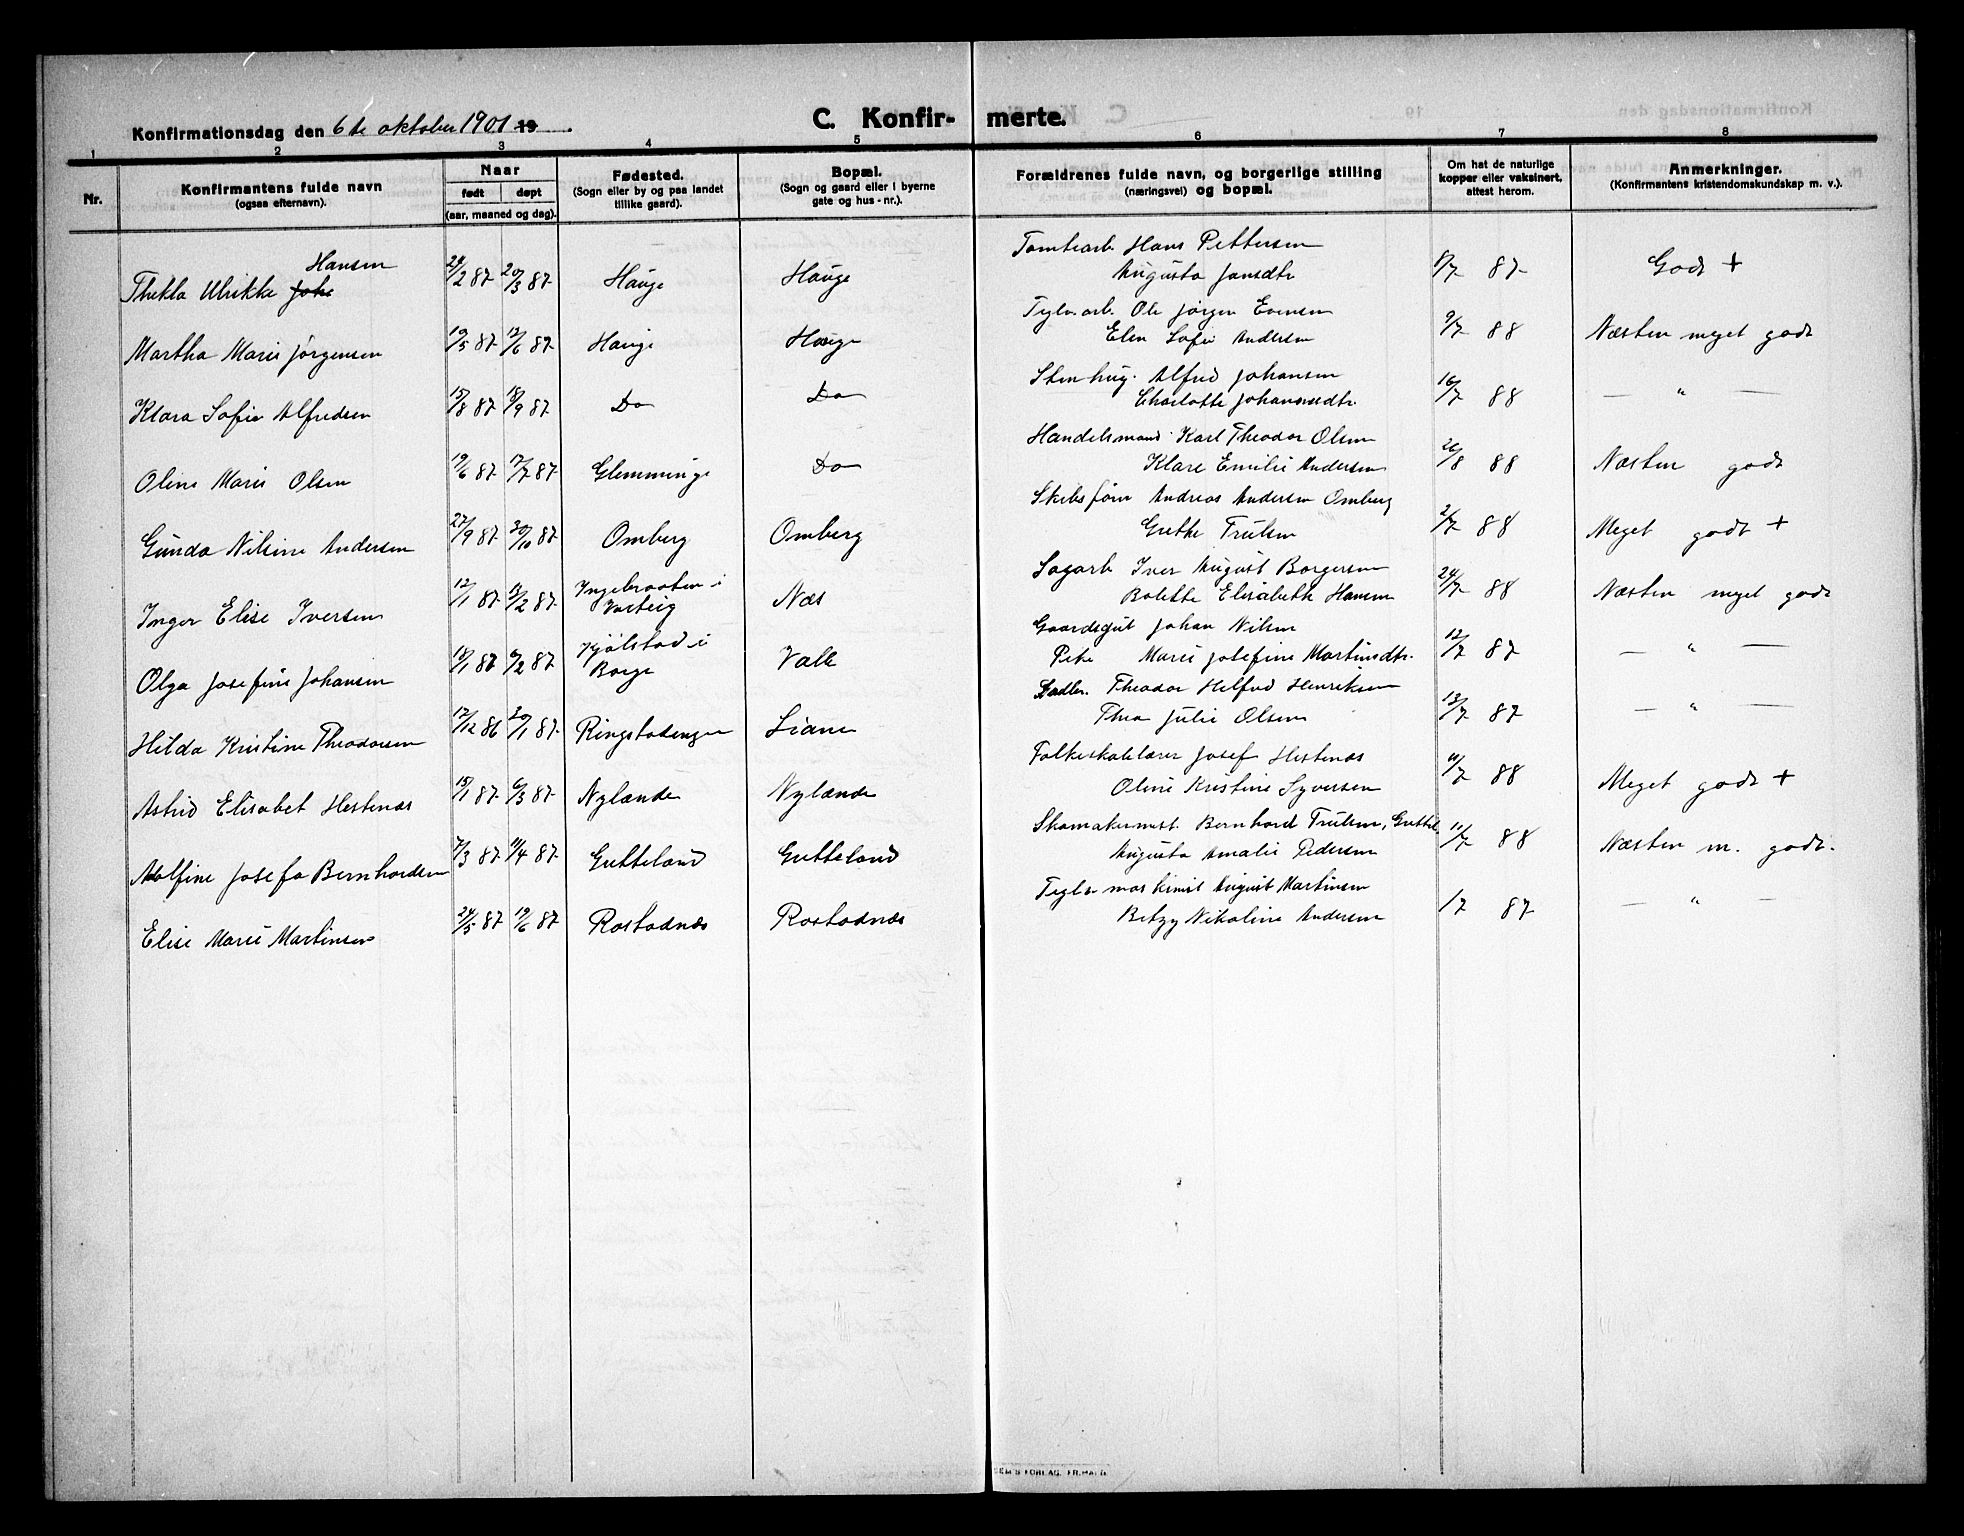 Konfirmationsdag den 6te oktober 1901 19
C. Konfir-merte.
1 2 3 4 5 6 7 8
Nr.
Konfirmantens fulde navn
(ogsaa efternavn).
Naar
født døpt
(aar, maaned og dag).
Fødested.
(Sogn eller by og paa landet
tillike gaard).
Bopæl.
(Sogn og gaard eller i byerne
gate og hus-nr.).
Forældrenes fulde navn, og borgerlige stilling
(næringsvei) og bopæl.
Om hat de naturlige
kopper eller vaksinert,
attest herom.
Anmerkninger.
(Konfirmantens kristendomskundskap m. v.).
Hansen Tomtearb. Hans Pettersen
Thekla Ulrikke Joh 24/2 87 20/3 87 Hauge Hauge Augusta Jansdtr 8/7 87 Godt +
Teglv.arb. Ole Jørgen Evensen
Martha Marie Jørgensen 19/5 87 12/6 87 Hauge Hauge Elen Sofie Andersen 9/7 88 Næsten meget godt
Stenhug. Alfred Johansen
Klara Sofie Alfredsen 15/8 87 18/9 87 Do Do Charlotte Johannesdtr. 16/7 88 — " —
Handelsmand Karl Theodor Olsen
Oline Marie Olsen 19/6 87 17/7 87 Glemminge Do Klare Emilie Andersen 26/8 88 Næsten godt
Skibsfører Andreas Andersen Omberg
Gunda Nilsine Andersen 27/9 87 30/10 87 Omberg Omberg Grethe Trulsen 2/7 88 Meget godt +
Sagarb Iver August Borgersen
Inger Elise Iversen 12/1 87 13/2 87 Ingebraaten i Varteig Næs Bolette Elisabeth Hansen 24/7 88 Næsten meget godt
Gaardsgut Johan Nilsen
Olga Josefine Johansen 18/1 87 6/2 87 Kjølstad i Borge Valle Pike Marie Josefine Martinsdtr. 12/7 87 — " —
Sadlm. Theodor Helfred Henriksen
Hilda Kristine Theodorsen 17/12 86 30/1 87 Ringstadengen Liane Thea Julie Olsen 13/7 87 — " —
Folkeskolelærer Josef Hestenæs
Astrid Elisabet Hestenæs 15/1 87 6/3 87 Nylænde Nylænde Oline Kristine Syversen 11/7 88 Meget godt +
Skomakermest. Bernhard Trulsen, Guttel.
Adolfine Josefa Bernhardsen 7/3 87 11/4 87 Gutteland Gutteland Augusta Amalie Pedersen 11/7 88 Næsten m. godt.
Teglv maskinist August Martinsen
Elise Marie Martinsen 24/5 87 19/6 87 Rostadnæs Rostadnæs Betzy Nikoline Andersen 17 87 — " —
SEM'S FORLAG, FR.HALD